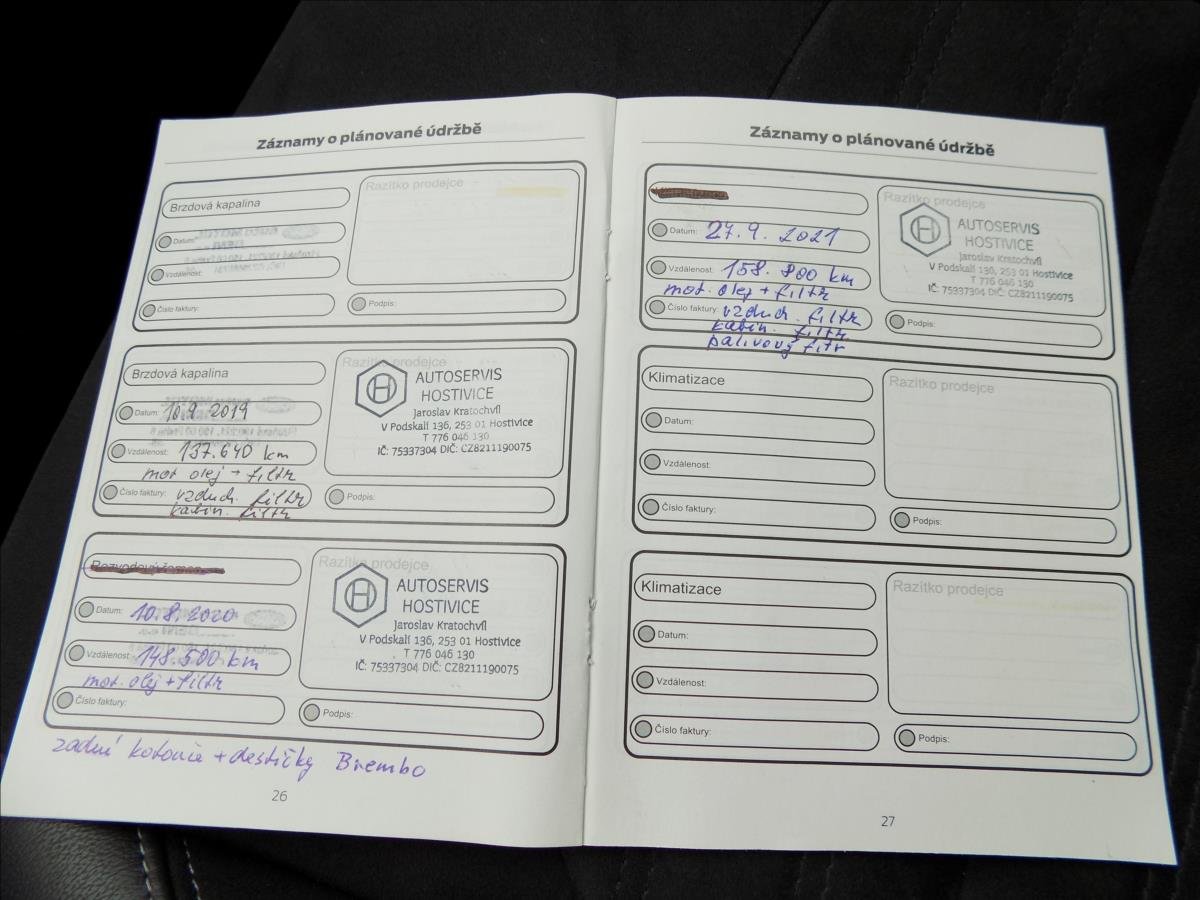 Záznamy o plánované údržbě
Brzdová kapalina
Datum:
Vzdálenost:
Číslo faktury:
Razítko prodejce
Podpis:
Brzdová kapalina
Datum: 10.9 2019
Vzdálenost: 137.640 km
mot olej + filtr
Číslo faktury: vzduch. filtr
kabin. filtr
Razítko prodejce
AUTOSERVIS
HOSTIVICE
Jaroslav Kratochvíl
V Podskalí 136, 253 01 Hostivice
T 776 046 130
IČ: 75337304 DIČ: CZ8211190075
Podpis:
Datum: 10.8.2020
Vzdálenost: 148.500 km
mot. olej + filtr
Číslo faktury:
Razítko prodejce
AUTOSERVIS
HOSTIVICE
Jaroslav Kratochvíl
V Podskalí 136, 253 01 Hostivice
T 776 046 130
IČ: 75337304 DIČ: CZ8211190075
Podpis:
zadní kotouče + destičky Brembo
26
Záznamy o plánované údržbě
Datum: 27.9. 2021
Vzdálenost: 158.800 km
mot. olej + filtr
Číslo faktury: vzduch. filtr
kabin. filtr
palivový fitr
Razítko prodejce
AUTOSERVIS
HOSTIVICE
Jaroslav Kratochvíl
V Podskalí 136, 253 01 Hostivice
T 776 046 130
IČ: 75337304 DIČ: CZ8211190075
Podpis:
Klimatizace
Datum:
Vzdálenost:
Číslo faktury:
Razítko prodejce
Podpis:
Klimatizace
Datum:
Vzdálenost:
Číslo faktury:
Razítko prodejce
Podpis:
27